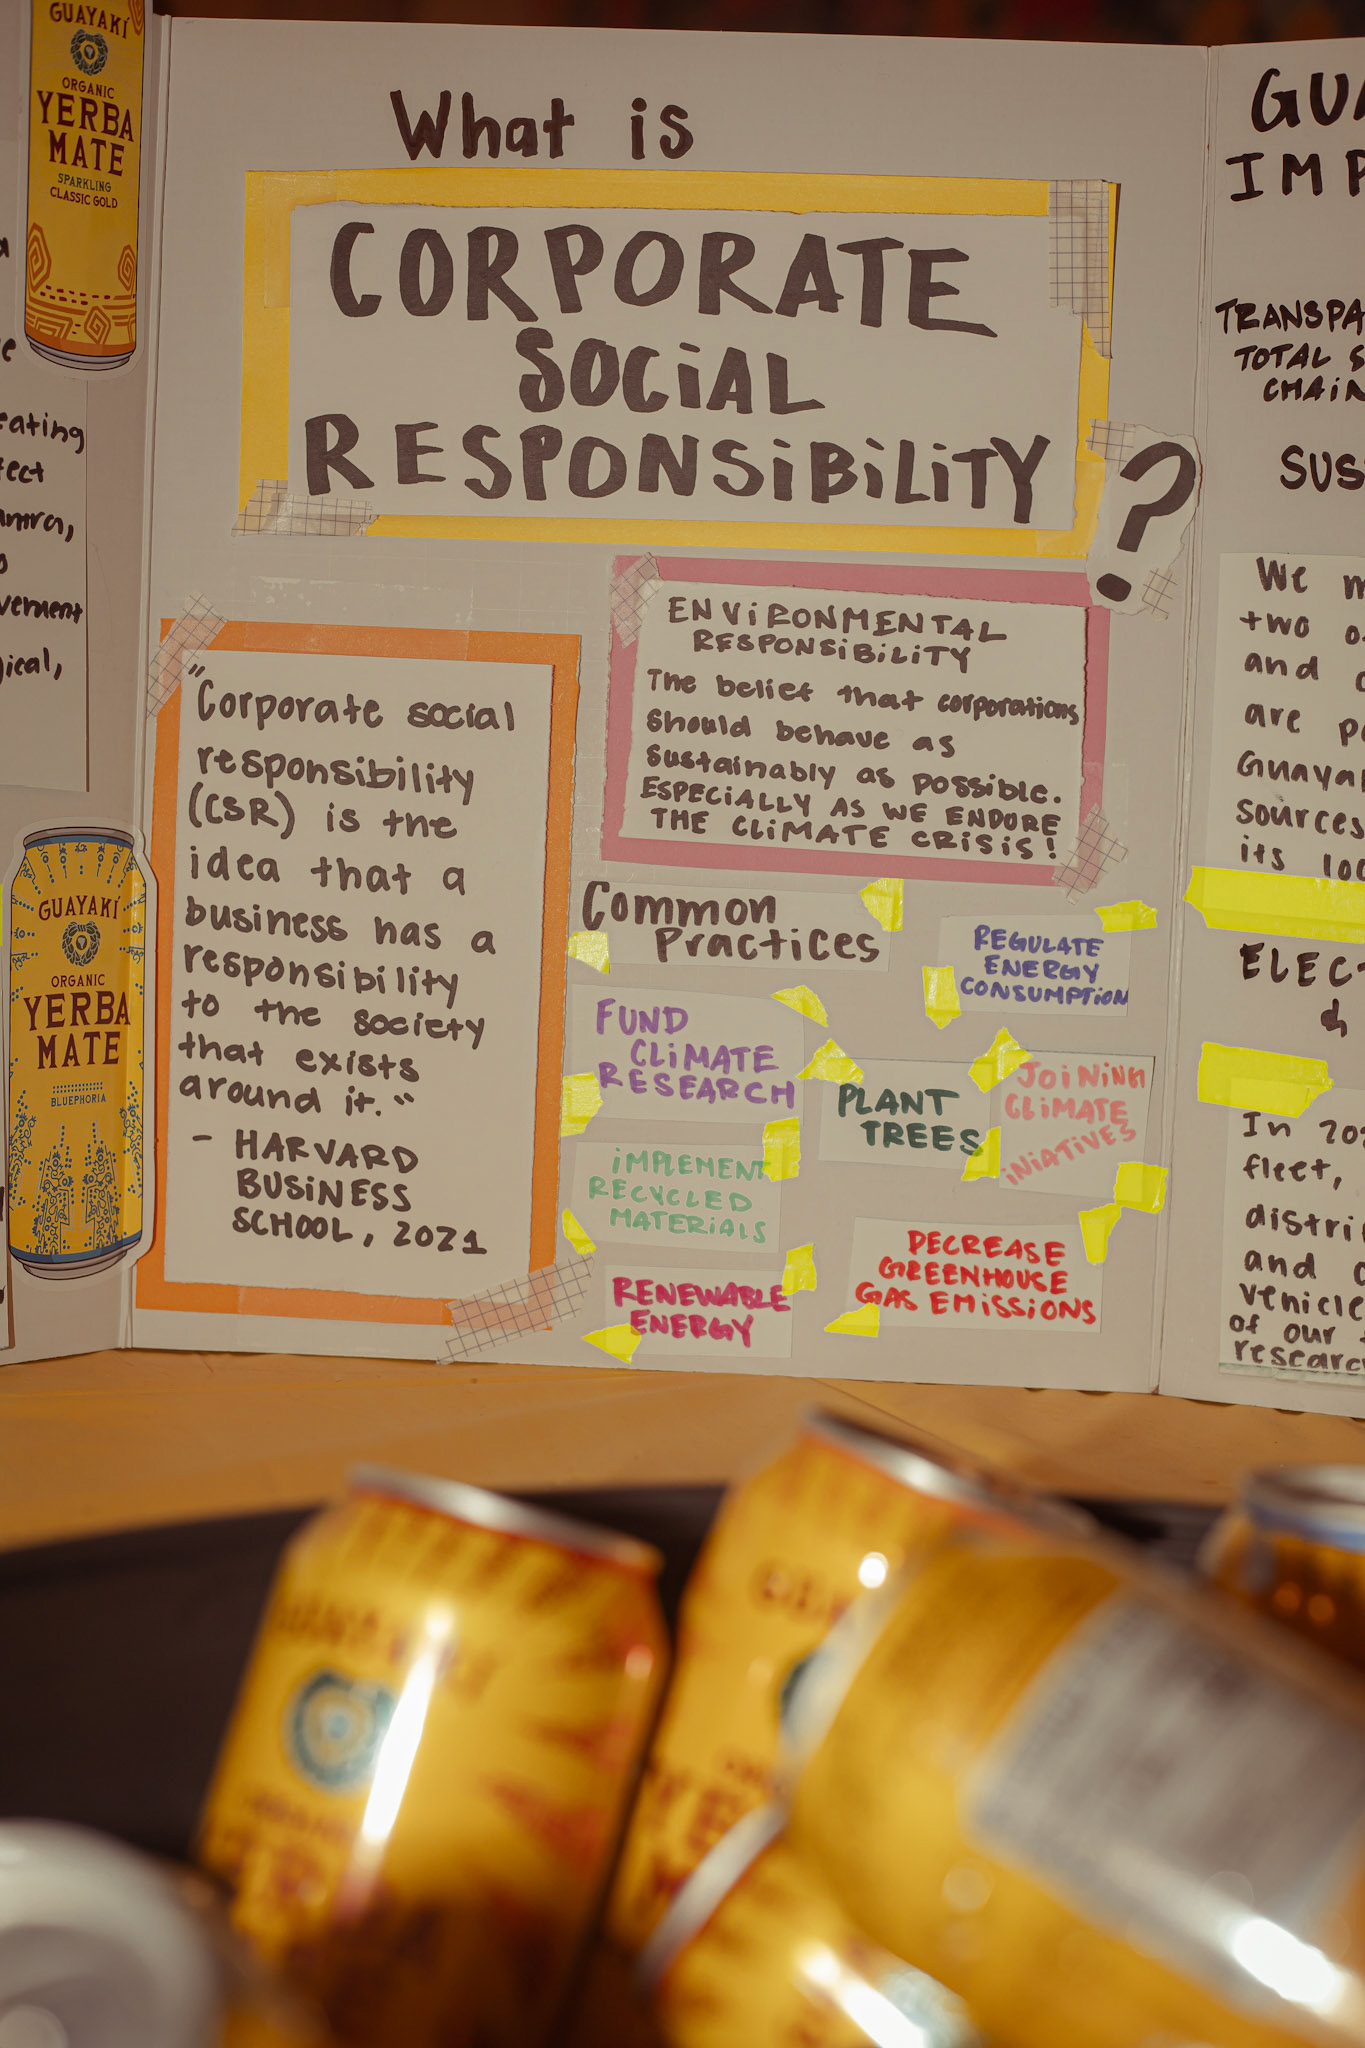 GUAYAKÍ
ORGANIC
YERBA
MATE
SPARKLING
CLASSIC GOLD
GUAYAKÍ
ORGANIC
YERBA
MATE
BLUEPHORIA
What is
CORPORATE
SOCIAL
RESPONSIBILITY
?
"Corporate social
responsibility
(CSR) is the
idea that a
business has a
responsibility
to the society
that exists
around it."
- HARVARD
BUSINESS
SCHOOL, 2021
ENVIRONMENTAL
RESPONSIBILITY
The belief that corporations
should behave as
sustainably as possible.
ESPECIALLY AS WE ENDURE
THE CLIMATE CRISIS!
Common
Practices
REGULATE
ENERGY
CONSUMPTION
FUND
CLIMATE
RESEARCH
PLANT
TREES
JOINING
CLIMATE
INIATIVES
IMPLEMENT
RECYCLED
MATERIALS
RENEWABLE
ENERGY
DECREASE
GREENHOUSE
GAS EMISSIONS
TOTAL
CHAIN
We
two
and
are
sources
its
In
fleet,
and
vehicle
of our